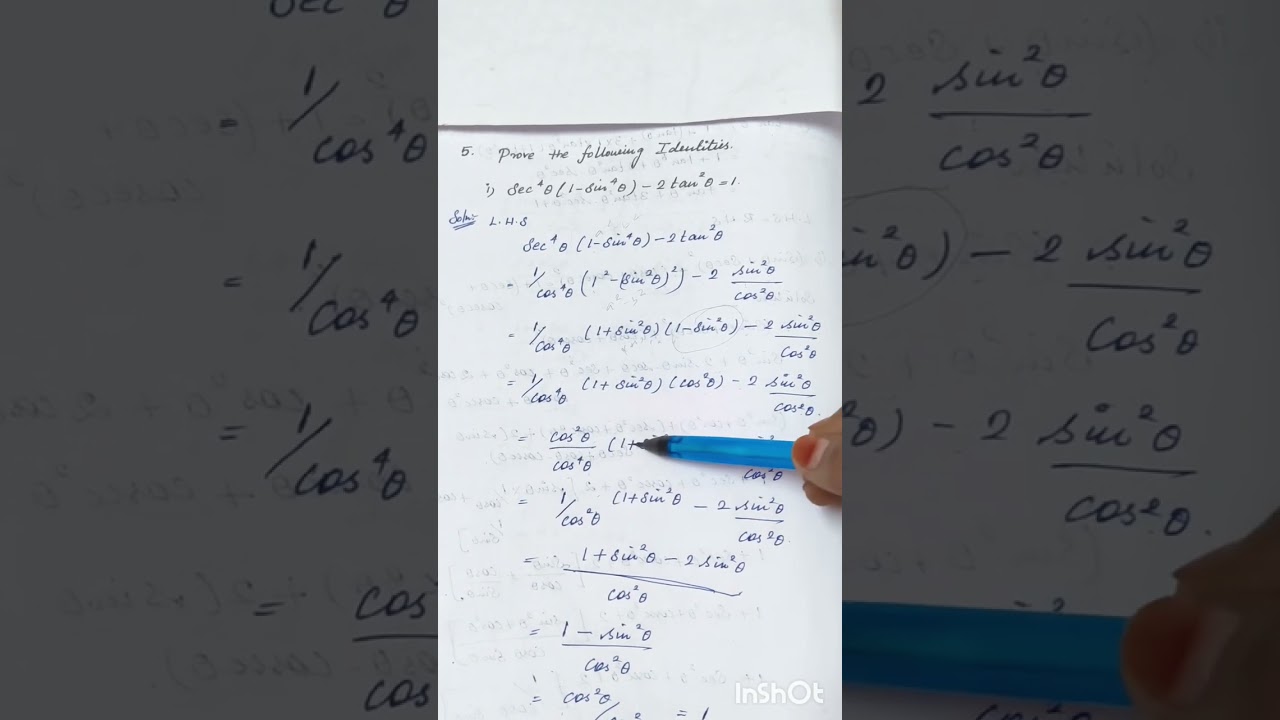 5. Prove the following Identities.
i) Sec⁴θ (1-Sin⁴θ) - 2tan²θ = 1.
Soln:- L.H.S
Sec⁴θ (1-Sin⁴θ) - 2tan²θ
= 1/cos⁴θ (1² - (Sin²θ)²) - 2 sin²θ/cos²θ
= 1/cos⁴θ (1+sin²θ) (1-sin²θ) - 2 sin²θ/cos²θ
= 1/cos⁴θ (1+sin²θ) (cos²θ) - 2 sin²θ/cos²θ.
= cos²θ/cos⁴θ (1+ sin²θ/cos²θ
= 1/cos²θ (1+sin²θ - 2 sin²θ/cos²θ.
= 1+sin²θ - 2sin²θ/cos²θ
= 1 - sin²θ/cos²θ
= cos²θ/ = 1
InShOt